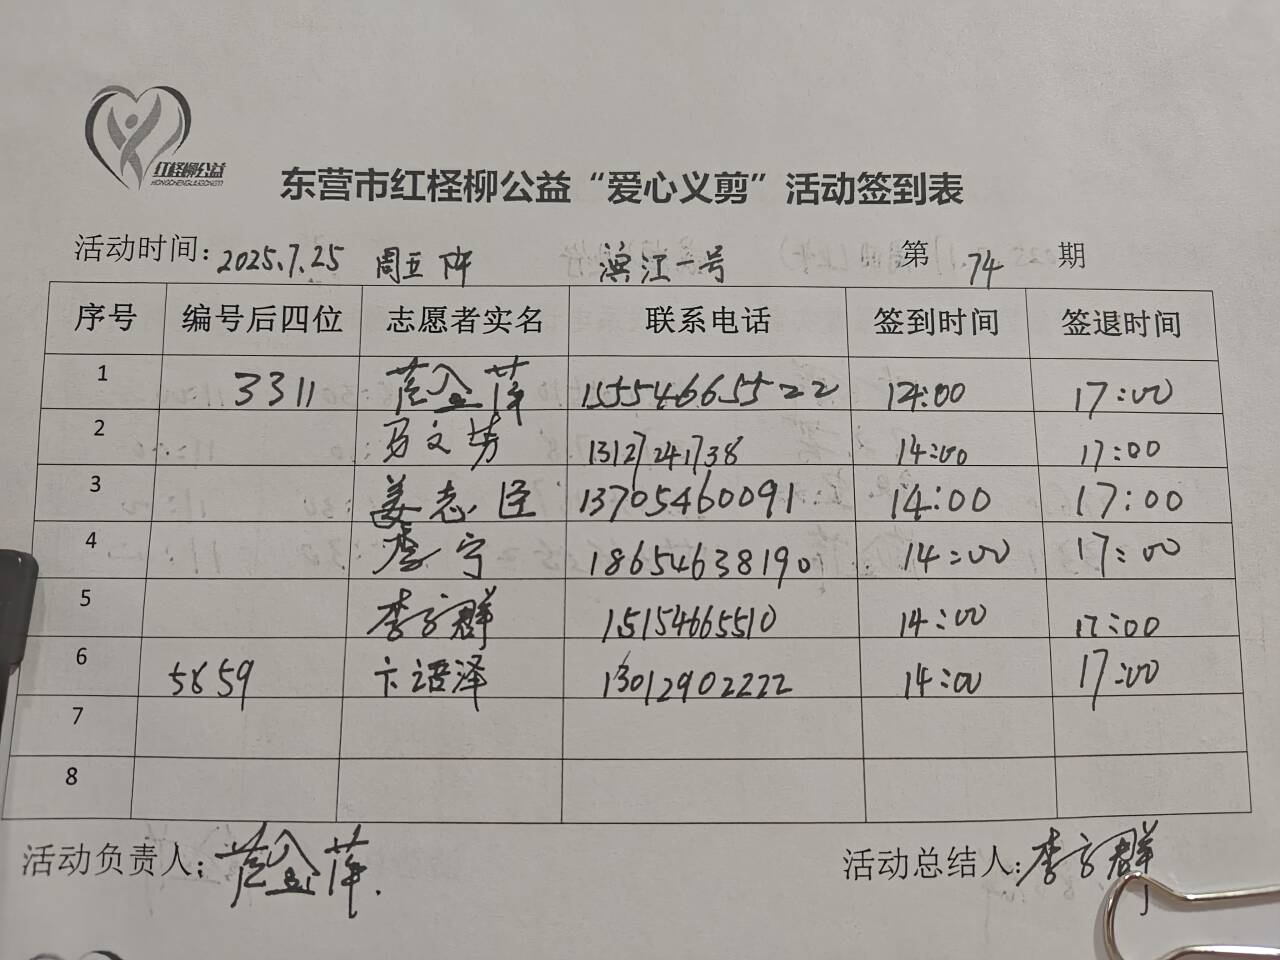 红柽柳公益
HONGCHENGLIUGONGYI
东营市红柽柳公益“爱心义剪”活动签到表
活动时间：2025.7.25 周五下午 滨江一号 第 74 期
序号 编号后四位 志愿者实名 联系电话 签到时间 签退时间
1 3311 金萍 15554665522 14:00 17:00
2 文 13127241738 14:00 17:00
3 姜志臣 13705460091 14:00 17:00
4 李宁 18654638190 14:00 17:00
5 李方群 15154665510 14:00 17:00
6 5859 卞语泽 13012902222 14:00 17:00
7
8
活动负责人： 金萍. 活动总结人：李方群